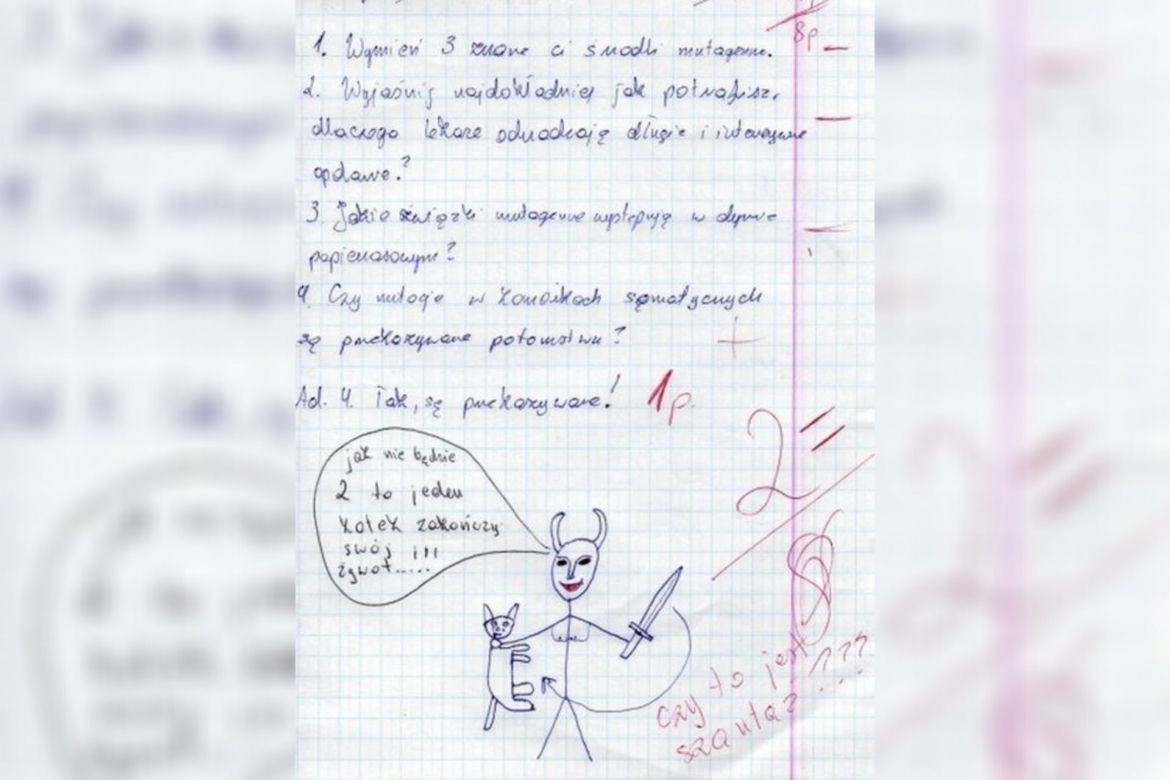 8p.
1. Wymień 3 znane ci środki mutagenne.
2. Wyjaśnij najdokładniej jak potrafisz,
dlaczego lekarze odradzają długie i intensywne
opalanie?
3. Jakie związki mutagenne wptępują w dymie
papierosowym?
4. Czy mutacje w komórkach somatycznych
są przekazywane potomstwu?
Ad. 4. Tak, są przekazywane! 1p.
2=
jak nie będzie
2 to jeden
kotek zakończy
swój !!!
żywot.....
czy to jest
szantaż???